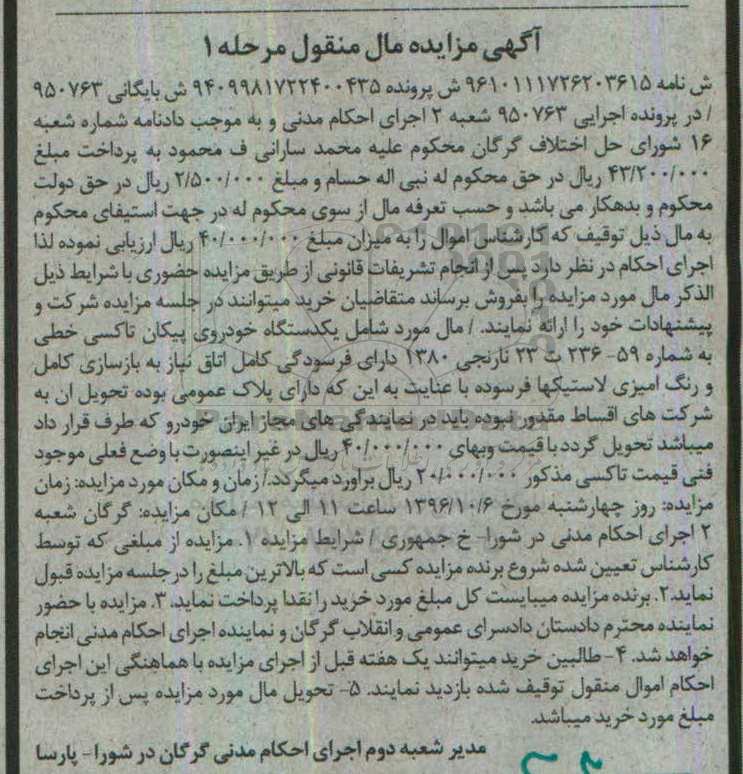 آگهی مزایده مال منقول مرحله ۱
ش نامه ۹۶۱۰۱۱۱۷۲۶۲۰۳۶۱۵ ش پرونده ۹۴۰۹۹۸۱۷۲۲۴۰۰۴۳۵ ش بایگانی ۹۵۰۷۶۳
/ در پرونده اجرایی ۹۵۰۷۶۳ شعبه ۲ اجرای احکام مدنی و به موجب دادنامه شماره شعبه
۱۶ شورای حل اختلاف گرگان محکوم علیه محمد سارانی ف محمود به پرداخت مبلغ
۴۳/۲۰۰/۰۰۰ ریال در حق محکوم له نبی اله حسام و مبلغ ۲/۵۰۰/۰۰۰ ریال در حق دولت
محکوم و بدهکار می باشد و حسب تعرفه مال از سوی محکوم له در جهت استیفای محکوم
به مال ذیل توقیف که کارشناس اموال را به میزان مبلغ ۴۰/۰۰۰/۰۰۰ ریال ارزیابی نموده لذا
اجرای احکام در نظر دارد پس از انجام تشریفات قانونی از طریق مزایده حضوری با شرایط ذیل
الذکر مال مورد مزایده را بفروش برساند متقاضیان خرید میتوانند در جلسه مزایده شرکت و
پیشنهادات خود را ارائه نمایند. / مال مورد شامل یکدستگاه خودروی پیکان تاکسی خطی
به شماره ۵۹- ۲۳۶ ت ۲۳ نارنجی ۱۳۸۰ دارای فرسودگی کامل اتاق نیاز به بازسازی کامل
و رنگ امیزی لاستیکها فرسوده با عنایت به این که دارای پلاک عمومی بوده تحویل ان به
شرکت های اقساط مقدور نبوده باید در نمایندگی های مجاز ایران خودرو که طرف قرار داد
میباشد تحویل گردد با قیمت وبهای ۴۰/۰۰۰/۰۰۰ ریال در غیر اینصورت با وضع فعلی موجود
فنی قیمت تاکسی مذکور ۲۰/۰۰۰/۰۰۰ ریال براورد میگردد./ زمان و مکان مورد مزایده: زمان
مزایده: روز چهارشنبه مورخ ۱۳۹۶/۱۰/۶ ساعت ۱۱ الی ۱۲ / مکان مزایده: گرگان شعبه
۲ اجرای احکام مدنی در شورا- خ جمهوری / شرایط مزایده ۱. مزایده از مبلغی که توسط
کارشناس تعیین شده شروع برنده مزایده کسی است که بالاترین مبلغ را در جلسه مزایده قبول
نماید.۲. برنده مزایده میبایست کل مبلغ مورد خرید را نقدا پرداخت نماید. ۳. مزایده با حضور
نماینده محترم دادستان دادسرای عمومی و انقلاب گرگان و نماینده اجرای احکام مدنی انجام
خواهد شد. ۴- طالبین خرید میتوانند یک هفته قبل از اجرای مزایده با هماهنگی این اجرای
احکام اموال منقول توقیف شده بازدید نمایند. ۵- تحویل مال مورد مزایده پس از پرداخت
مبلغ مورد خرید میباشد.
مدیر شعبه دوم اجرای احکام مدنی گرگان در شورا- پارسا